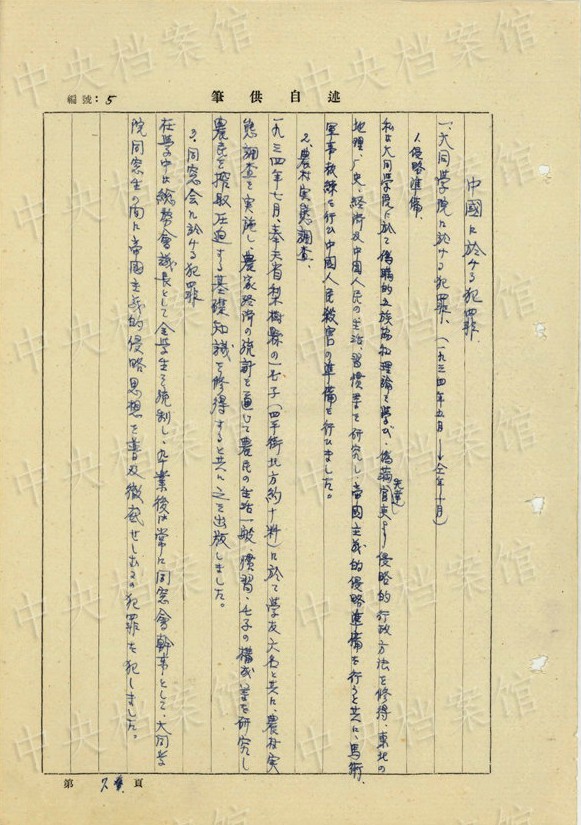 編號：5
述自供筆
中國に於ける犯罪．
一、大同学院に於ける犯罪．（一九三四年五月―→仝年十月）
1．侵略準備．
私は大同学院に於て偽瞞的五族協和理論を学び、偽満官吏先達より侵略的行政方法を修得、東北の
地理、厂史、経済及中國人民の生活、習慣等を研究し、帝國主義的侵略準備を行ると共に、馬術、
軍事教練を行ひ中國人民殺害の準備を行ひました。
2、農村実態調査．
一九三四年七月、奉天省梨樹縣の一屯子（四平街北方約十粁）に於て学友六名と共に、農村実
態調査を実施し、農家経済の統計を通じて農民の生活一般、慣習、屯子の構成等を研究し
農民を搾取圧迫する基礎知識を修得すると共に之を出版しました。
3．同窓会に於ける犯罪
在学中は総務會議長として全学生を統制し、卆業後は常に同窓會幹事として、大同学
院同窓生の間に帝國主義的侵略思想を普及徹底せしむるの犯罪を犯しました。
第 7 頁
中央档案馆